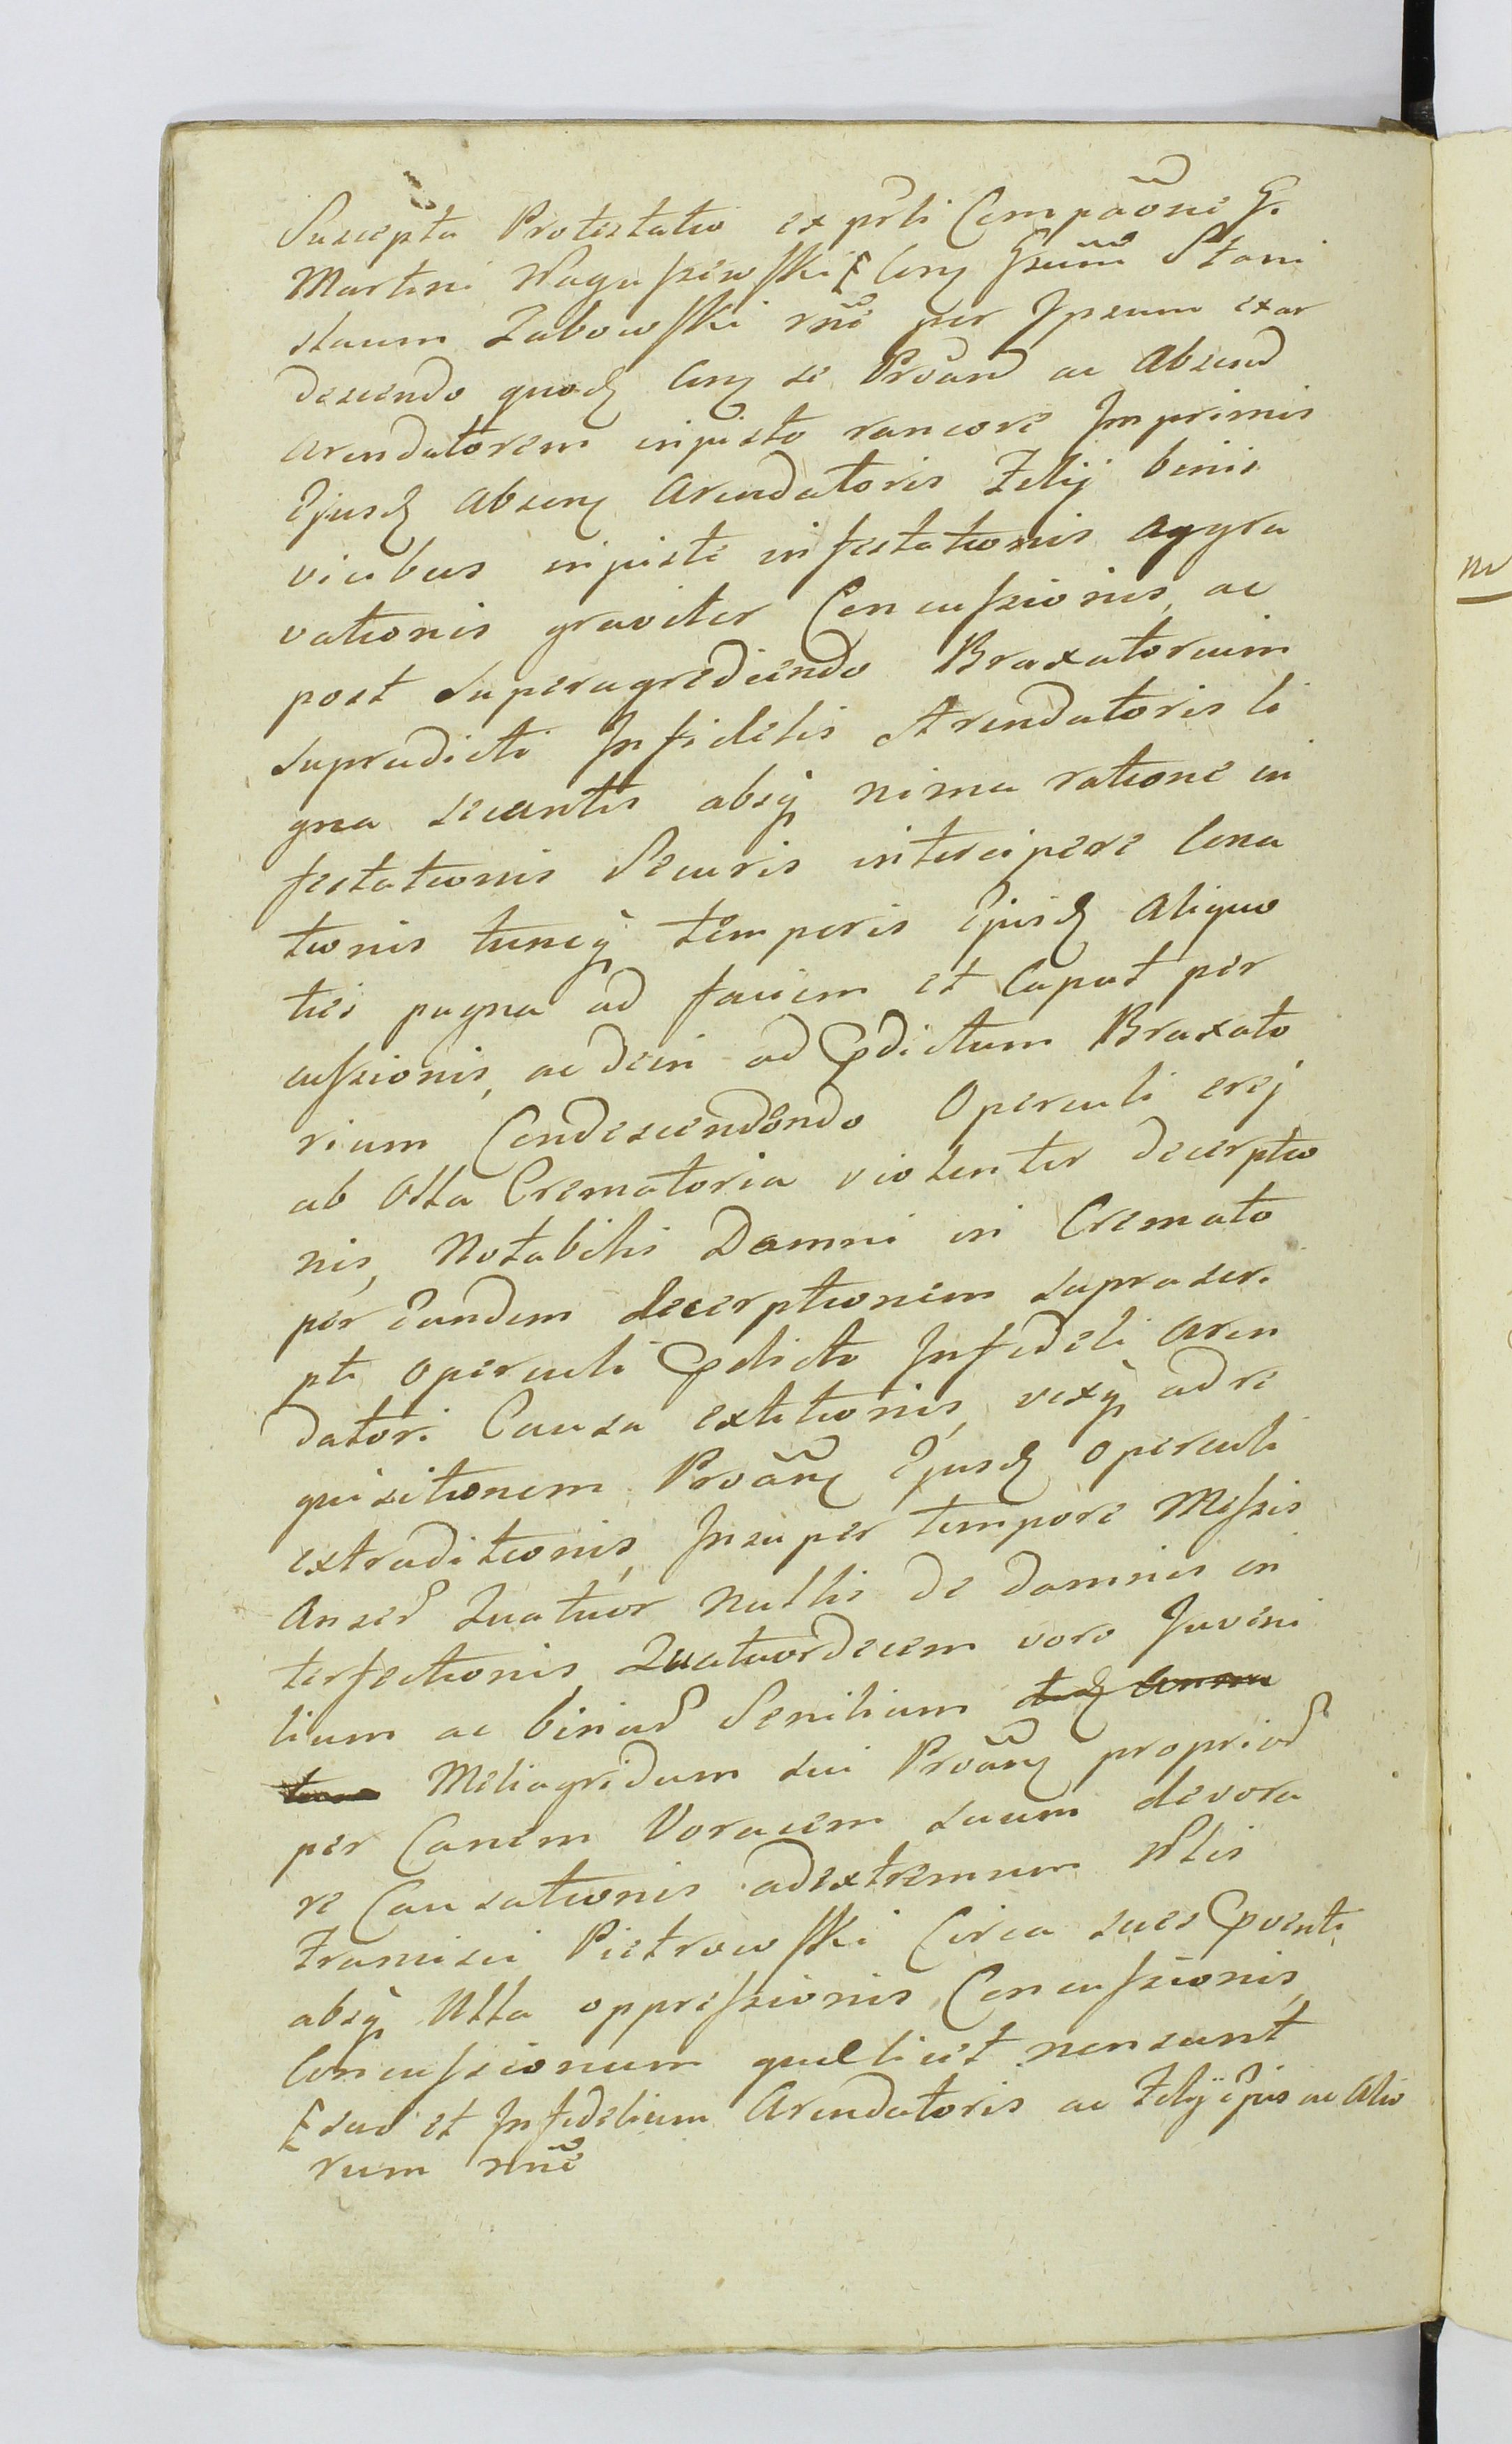 Suscepta Protestatio ex prti Compãõne G.
Martini Waguszewski Ccnq Gsum Stani
slaum Zabowski rñe per Ipsum exar
descendo quodq Cnq se Prõand ac Absend
arendatorem injusto rancore Imprimis
Ejusdq absenq Arendatoris Filij binis
vicibus injuste infestationis aggra
vationis graviter Concussionis, ac
post superagrediendo Braxatorium
supradicti Infidelis Arendatoris li
gna secantis absq nima ratione in
festationis Securis intercipere Cona
tionis tuncq temporis Ejusdq aliquo
ties pugna ad faciem et Caput per
cussionis, ac dein ad Pdictum Braxato
rium Condescendendo Operculi erej
ab Olla Crematoria violenter decerptio
nis, Notabilis Damni in Cremato
per Eandem decerptionem suprascr.
pti operculi Pdicto Infideli Aren
datori Causa extitionis, vixq ad re
quisitionem Prõanq Ejusdq operculi
extraditionis, Insuper tempore Messis
Anserũ Quatuor Nullis de Damnis in
terfectionis, Quatuordecem vero Juveni
lium ac binarũ Senilium
Meliagridum sui Prõanq propriarũ
per Canem Voracem suum devora
re Causationis adextremum Nblis
Francisci Pietrowski Circa sues Pventi
absq Ulla oppressionis, Concussionis,
Concussionum quellict non sunt
E sua et Infidelium Arendatoris ac Filij Ejus ac Alio
rum rñe